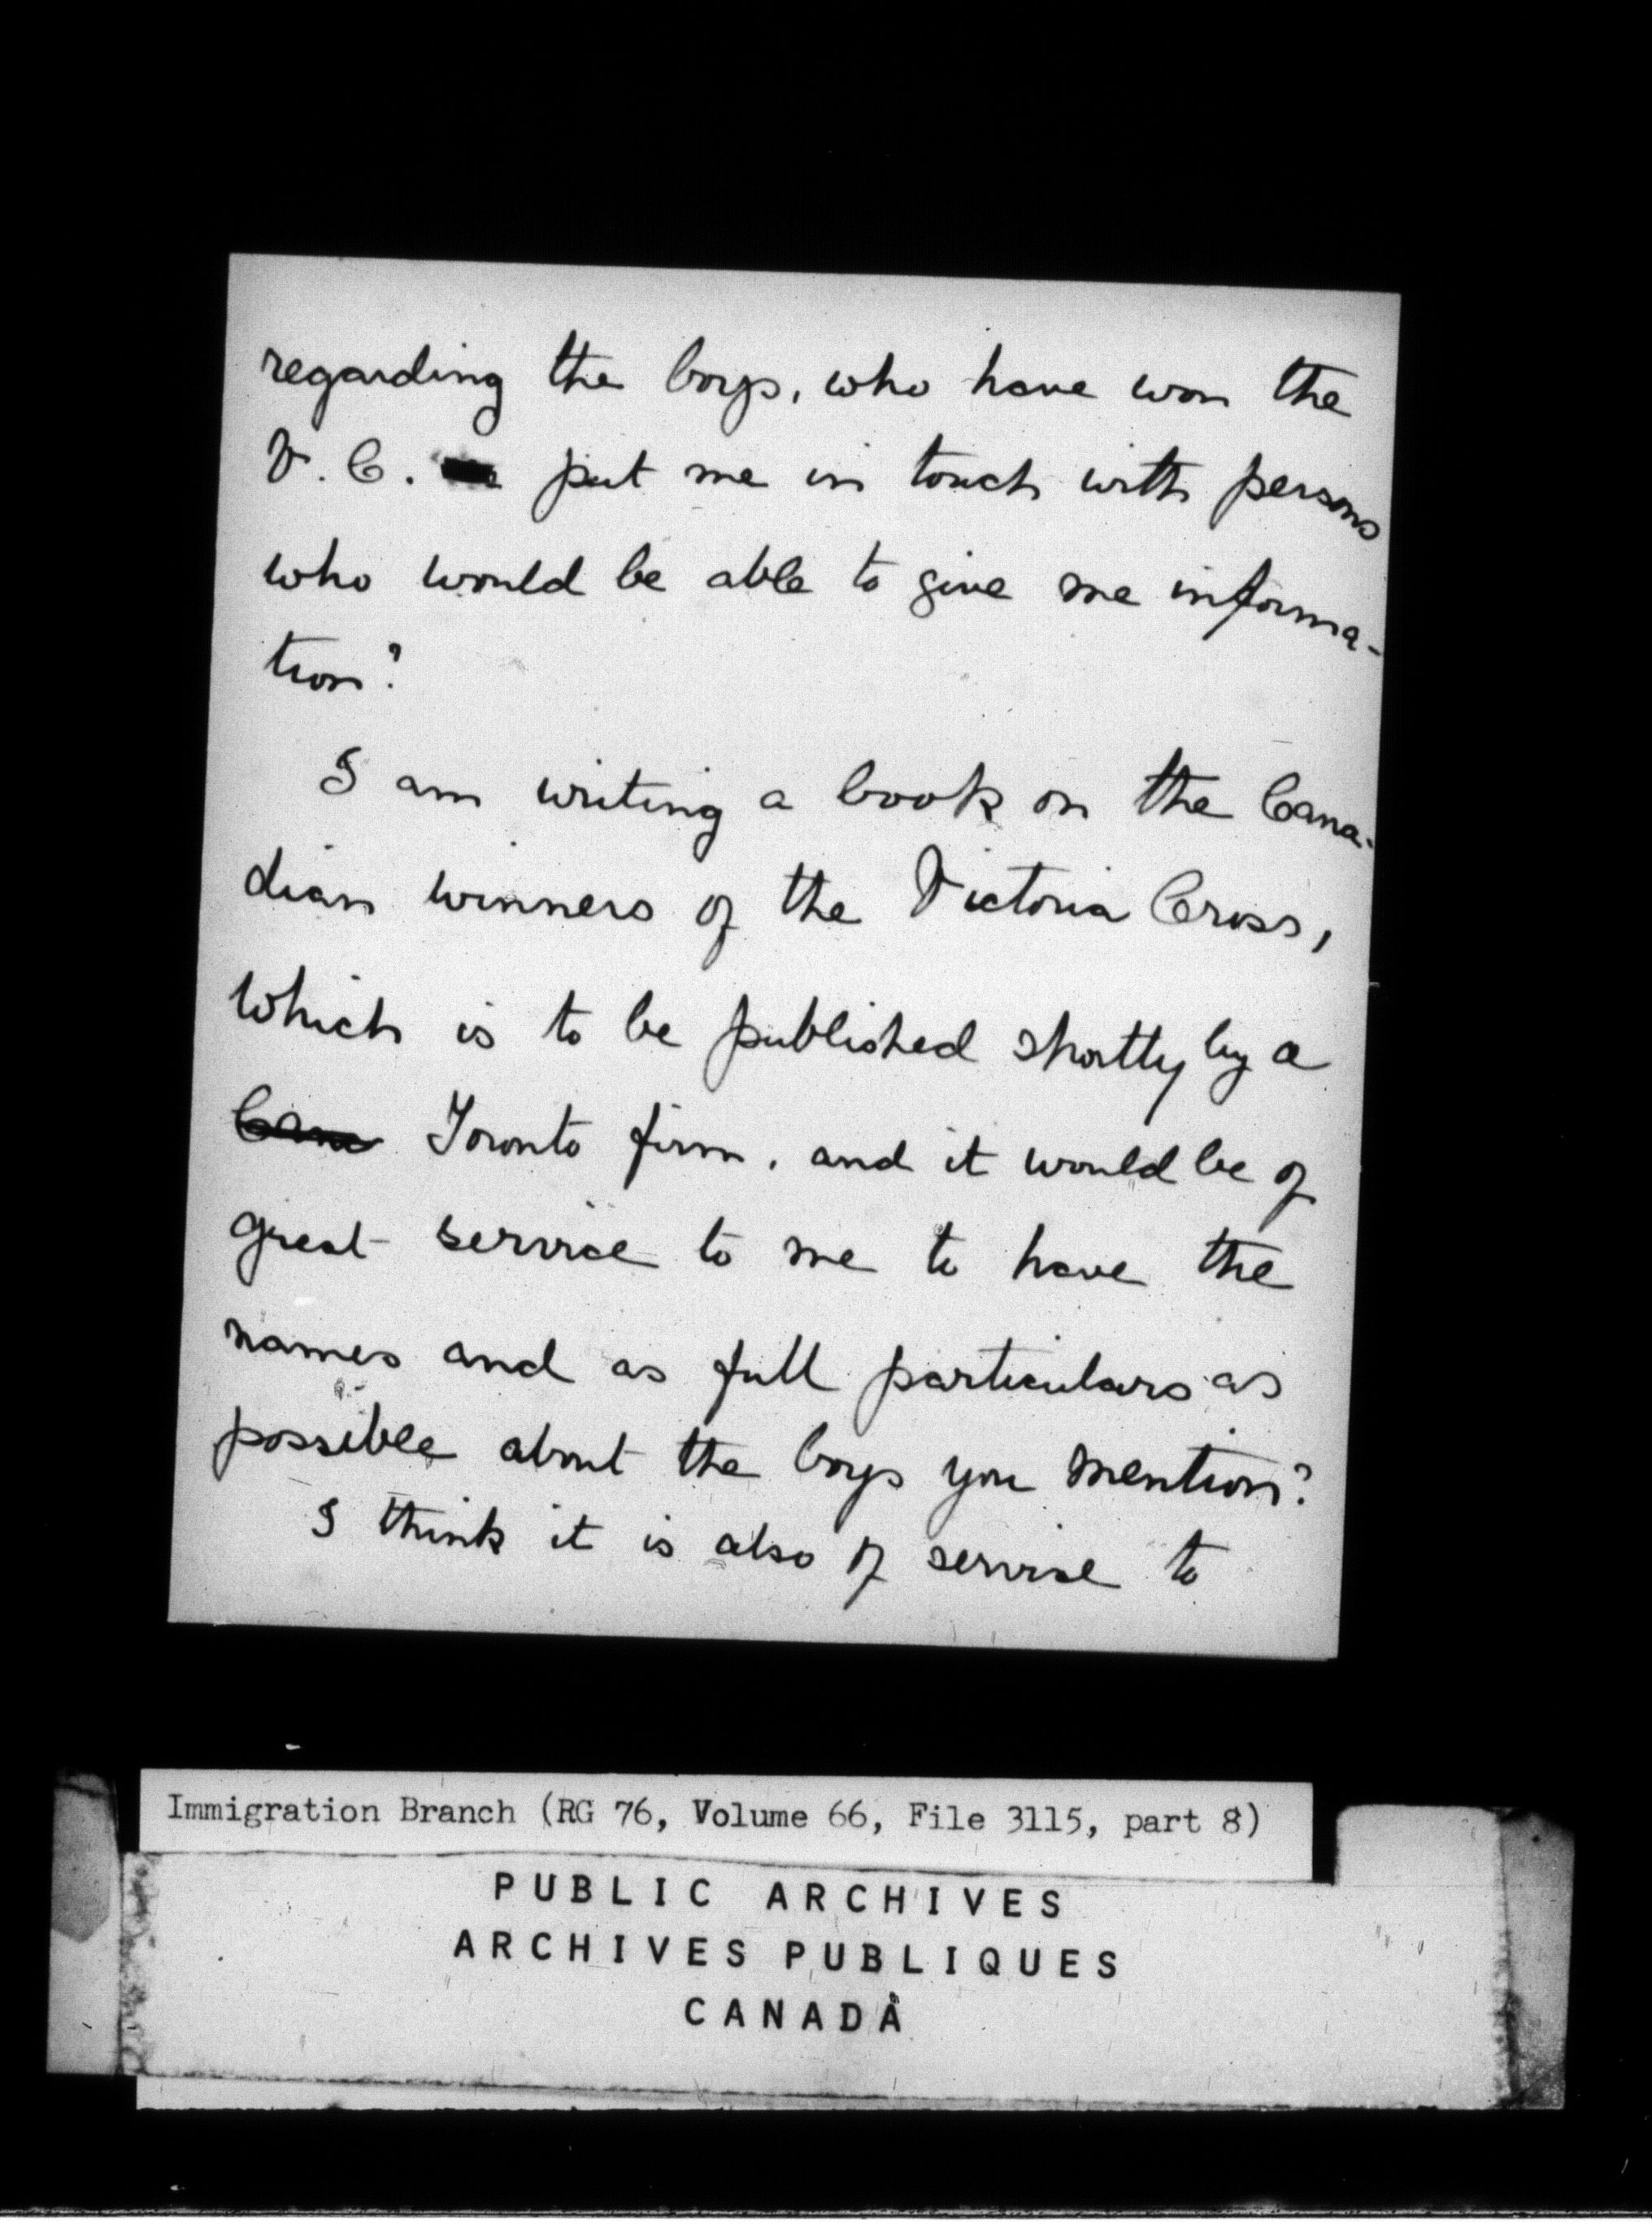 regarding the boys, who have won the
V. C. put me in touch with persons
who would be able to give me informa-
tion?
I am writing a book on the Cana-
dian winners of the Victoria Cross,
which is to be published shortly by a
Cana Toronto firm, and it would be of
great service to me to have the
names and as full particulars as
possible about the boys you mention?
I think it is also of service to
Immigration Branch (RG 76, Volume 66, File 3115, part 8)
PUBLIC ARCHIVES
ARCHIVES PUBLIQUES
CANADA